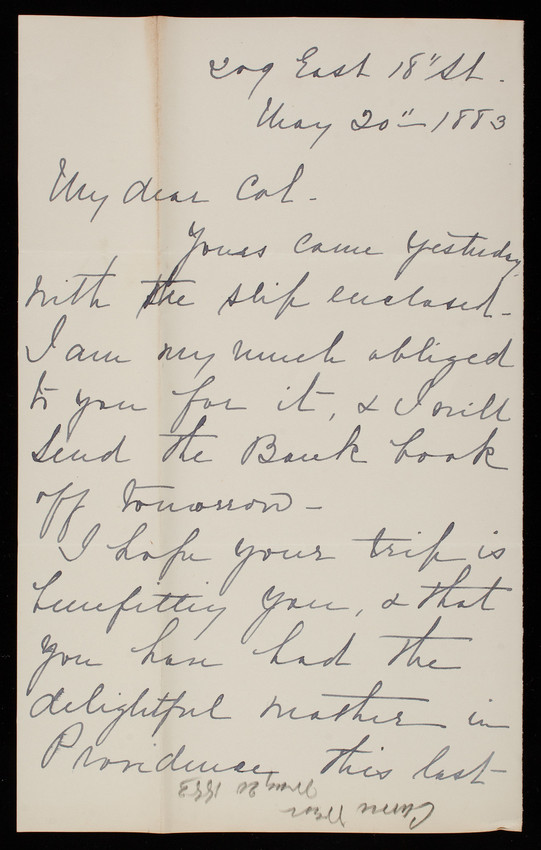 209 East 18" St.
May 20" - 1883
My dear Col -
Yours came yesterday,
with the slip enclosed -
I am very much obliged
to you for it, & I will
send the Bank book
off tomorrow -
I hope your trip is
benefitting you, & that
you have had the
delightful weather in
Providence, this last
May 20 1883